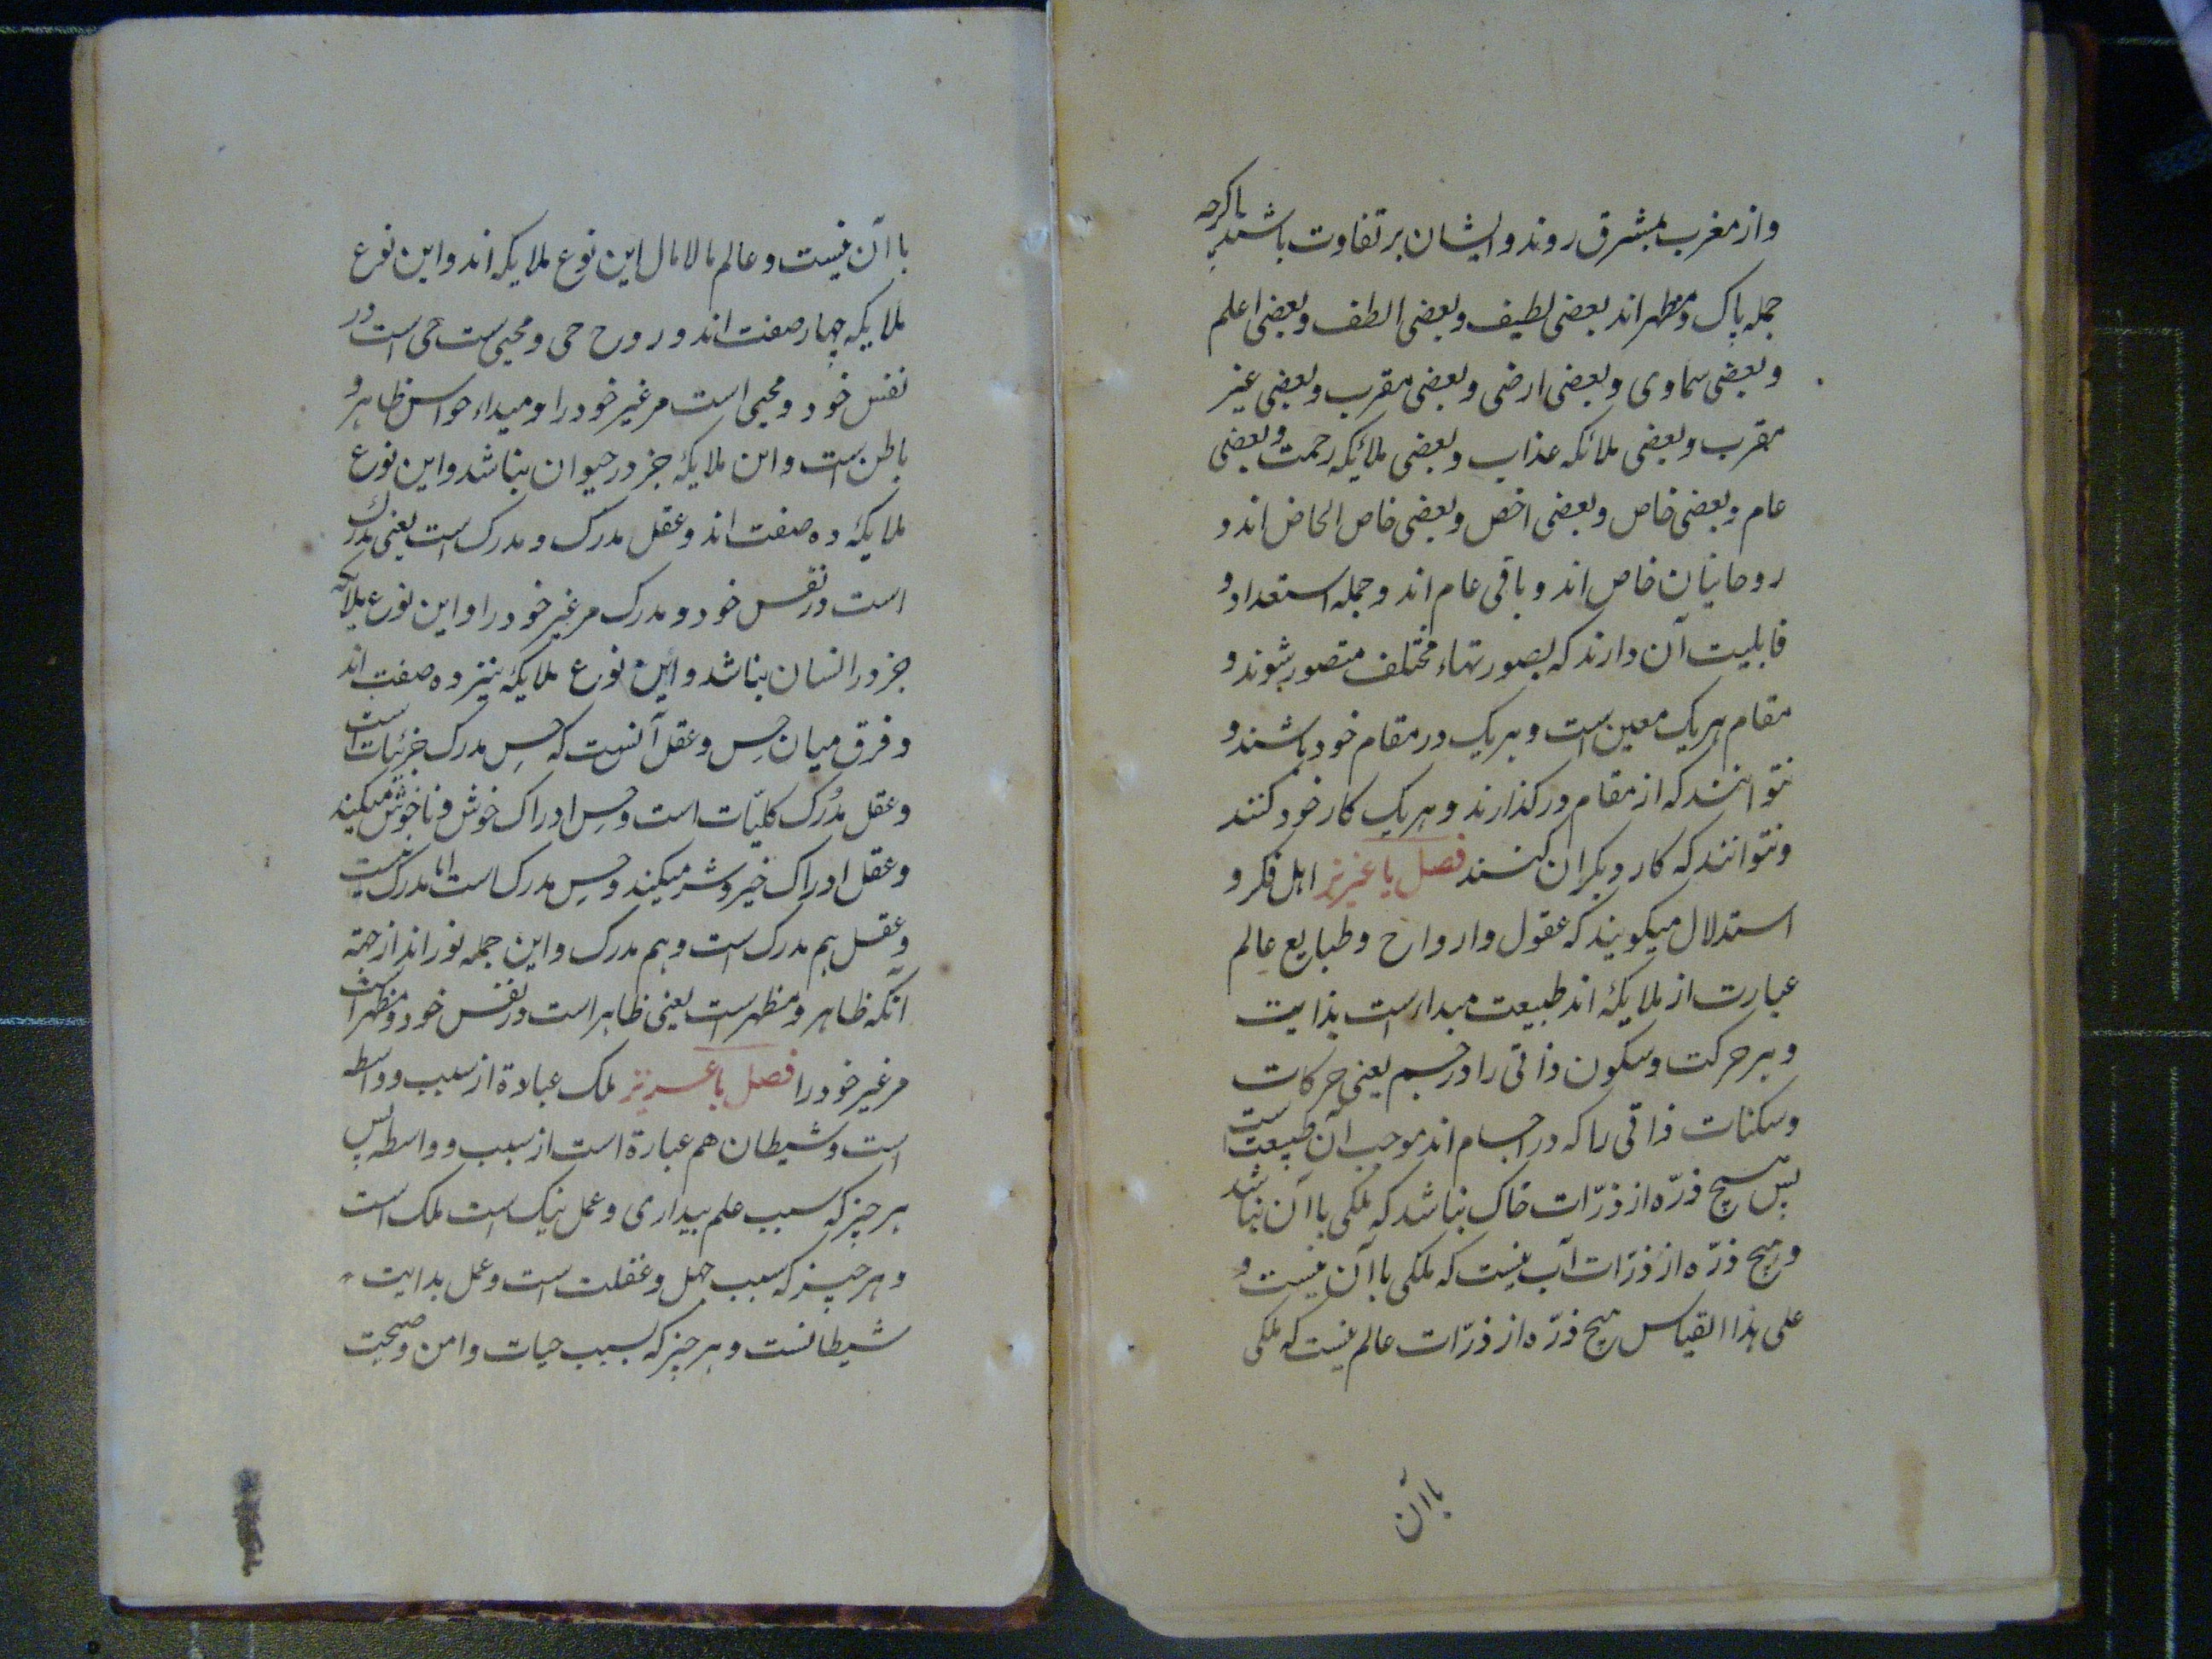 واز مغرب بمشرق روند و ایشان بر تفاوت باشند باکرچه
جمله پاک و مطهر اند بعضی لطیف و بعضی الطف و بعضی اعلم
و بعضی سماوی و بعضی ارضی و بعضی مقرب و بعضی غیر
مقرب و بعضی ملائکه عذاب و بعضی ملائکه رحمت و بعضی
عام و بعضی خاص و بعضی اخص و بعضی خاص الخاص اند و
روحانیان خاص اند و باقی عام اند و جمله استعداد و
قابلیت آن دارند که بصورتهاء مختلف متصور شوند و
مقام هریک معین است و هریک در مقام خود باشند و
نتوانند که از مقام در کذارند و هریک کار خود کنند
و نتوانند که کار دیکران کنند فصل یا عزیز اهل فکر و
استدلال میکویند که عقول و ارواح و طبایع عالم
عبارت از ملایکه اند طبیعت مبداء است بذاتیت
و هر حرکت و سکون ذاتی را در جسم یعنی حرکات
و سکنات ذاتی را که در اجسام اند موجب آن طبیعت است
پس هیچ ذرّه از ذرّات خاک نباشد که ملکی باآن نباشد
و هیچ ذرّه از ذرّات آب نیست که ملکی باآن نیست و
علی هذا القیاس هیچ ذرّه از ذرّات عالم نیست که ملکی
باآن
باآن نیست و عالم مالامال این نوع ملایکه اند و این نوع
ملایکه چهار صفت اند و روح حی و محیی ست حی است در
نفس خود و محیی است مر غیر خود را و مبداء حواس ظاهر و
باطن است و این ملایکه جز در حیوان نباشد و این نوع
ملایکه ده صفت اند و عقل مدرک و مدرک است یعنی مدرک
است در نفس خود و مدرک مر غیر خود را و این نوع ملائکه
جز در انسان نباشد و این نوع ملایکه نیز ده صفت اند
و فرق میان حِس و عقل آنست که حِس مدرک جزئیات است
و عقل مُدرک کلیّات است و حِس ادراک خوش و ناخوش میکند
و عقل ادراک خیر و شر میکند و حِس مدرک است اما مدرک نیست
و عقل هم مدرک است و هم مدرک و این جمله نور اند از جهة
آنکه ظاهر و مظهر است یعنی ظاهر است در نفس خود و مظهر است
مر غیر خود را فصل یا عزیز ملک عبادة از سبب و واسطه
است و شیطان هم عبارة است از سبب و واسطه پس
هر چیز که سبب علم بیداری و عمل نیک است ملک است
و هر چیز که سبب جهل و غفلت است و عمل بد ایت
شیطانست و هر چیز که سبب حیات و امن و صحت